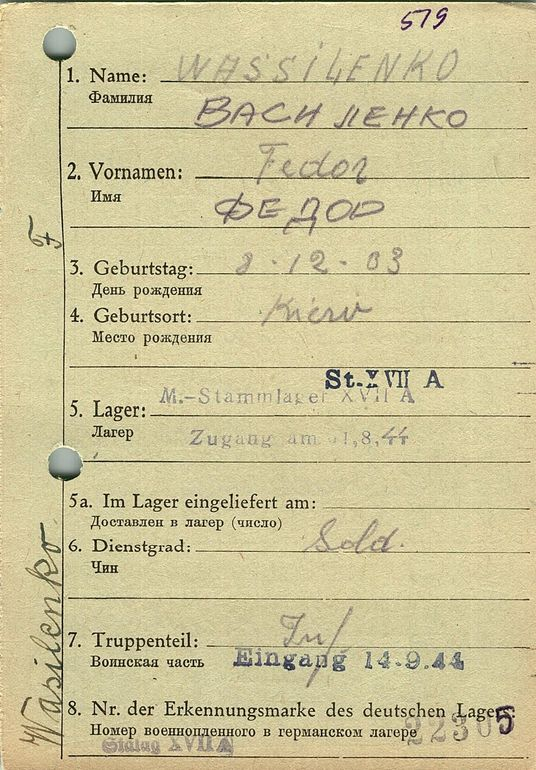 579
1. Name: WASSILENKO
Фамилия
ВАСИЛЕНКО
2. Vornamen: Fedor
Имя
ФЕДОР
3. Geburtstag: 8.12.03
День рождения
4. Geburtsort: Kiew
Место рождения
St. XVII A
M.-Stammlager XVII A
5. Lager:
Лагер
Zugang am 1,8,44
5a. Im Lager eingeliefert am:
Доставлен в лагер (число)
6. Dienstgrad: Sold.
Чин
7. Truppenteil: Inf
Воинская часть
Eingang 14.9.44
8. Nr. der Erkennungsmarke des deutschen Lagers
Номер военнопленного в германском лагере
22305
Stalag XVII A
Wasilenko F